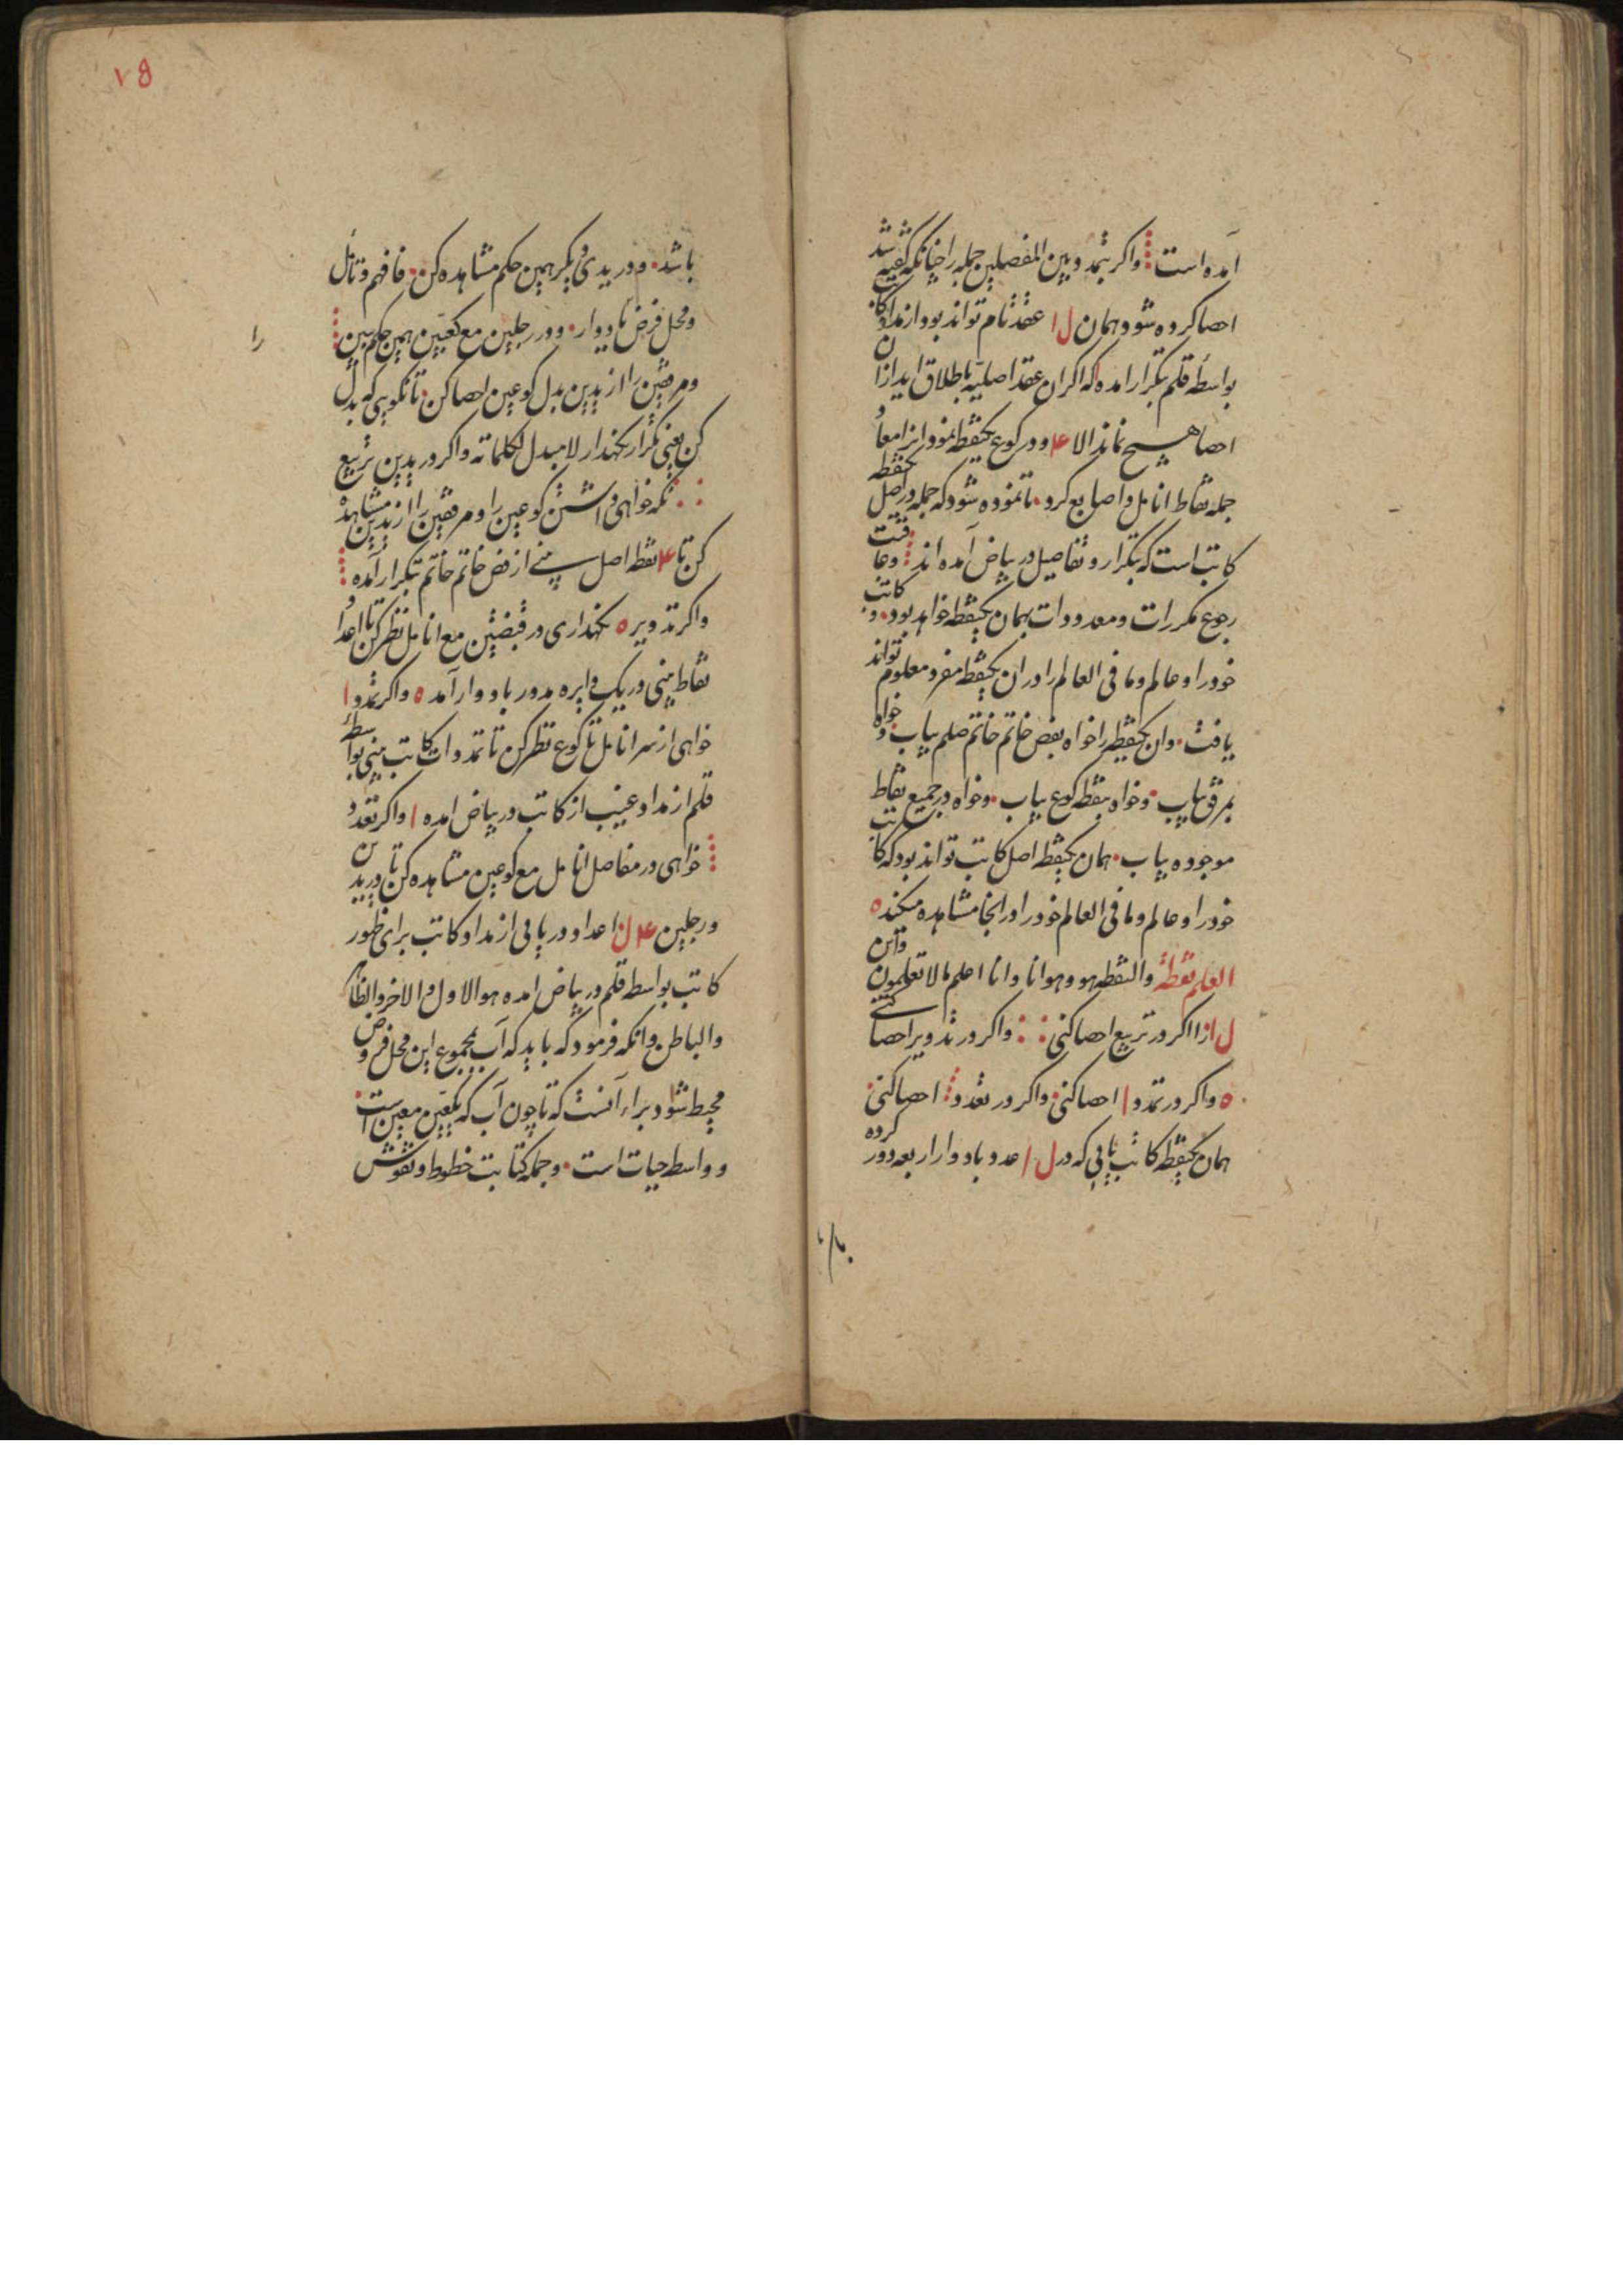 آمده است واکر بتمدد بین المفصلین جمله را چنانکه کفته شد
احصا کرده شود همان ل۱ عقد تام تواند بود و از مداد کا
بواسطه قلم بتکرار امده که اکر ان عقد اصلیه باطلاق اید ازان
احصا هیچ نماند الا ۴ و در کوع یکنقطه نمود و انرا معاد
جمله نقاط انامل و اصابع کرد تا نموده شود که جمله در اصل یکنقطه
کاتب است که بتکرار و تفاصیل در بیاض آمده اند وعاقبت
رجوع مکررات و معدودات بهمان یکنقطه خواهد بود و کاتب
خود را و عالم وما فی العالم را در ان یکنقطه مفرد معلوم تواند
یافت وان یکنقطه را خواه بفص خاتم خاتم صلعم بیاب و خواه
بمرفق بیاب وخواه بنقطه کوع بیاب وخواه در جمیع نقاط
موجوده بیاب همان یکنقطه اصل کاتب تواند بود که کاتب
خود را و عالم وما فی العالم خود را در انجا مشاهده میکند ه
العلم نقطة والنقطه هو وهو انا و انا اعلم ما لا تعلمون و این
ل ازا اکر در تربیع احصا کنی واکر در تدویر احصا کنی
ه واکر در تمدد ۱ احصا کنی واکر در تعدد احصا کنی
همان یکنقطه کاتب یابی که در ل ۱ عدد بادوار اربعه دور کرده
۷۵
باشد و در ید دیکر همین حکم مشاهده کن فافهم وتامل
ومحل فرض تا دوار و در رجلین مع کعبین همین حکم ببین
را
ومرفقین را از یدین بدل کوعین احصا کن تا نکویی که بدل
کن یعنی تکرار نکهدار لا مبدل لکلماته واکر در یدین تربیع
نکه خواهی داشتن کوعین را و مرفقین را از یدین مشاهده
کن تا ۴ نقطه اصل بینی از فص خاتم خاتم بتکرار آمده
واکر تدویر ه نکهداری در قبضتین مع انامل نظر کن تا اعداد
نقاط بینی در یک دایره مدور بادوار آمده ه واکر تمدد ۱
خواهی از سر انامل تا کوع نظر کن تا تمددات کاتب بینی بواسطه
قلم از مداد غیب از کاتب در بیاض امده ۱ واکر تعدد
خواهی در مفاصل انامل مع کوعین مشاهده کن تا در یدین
و رجلین ۴ ل اعداد دریابی از مداد کاتب برای ظهور
کاتب بواسطه قلم در بیاض امده هو الاول و الاخر والظاهر
والباطن وانکه فرمود که باید که آب بمجموع این محل فروض
محیط شود براء آنست که تا چون آب که بکعبین معین است
و واسطه حیات است وجمله کتابت خطوط ونقوش